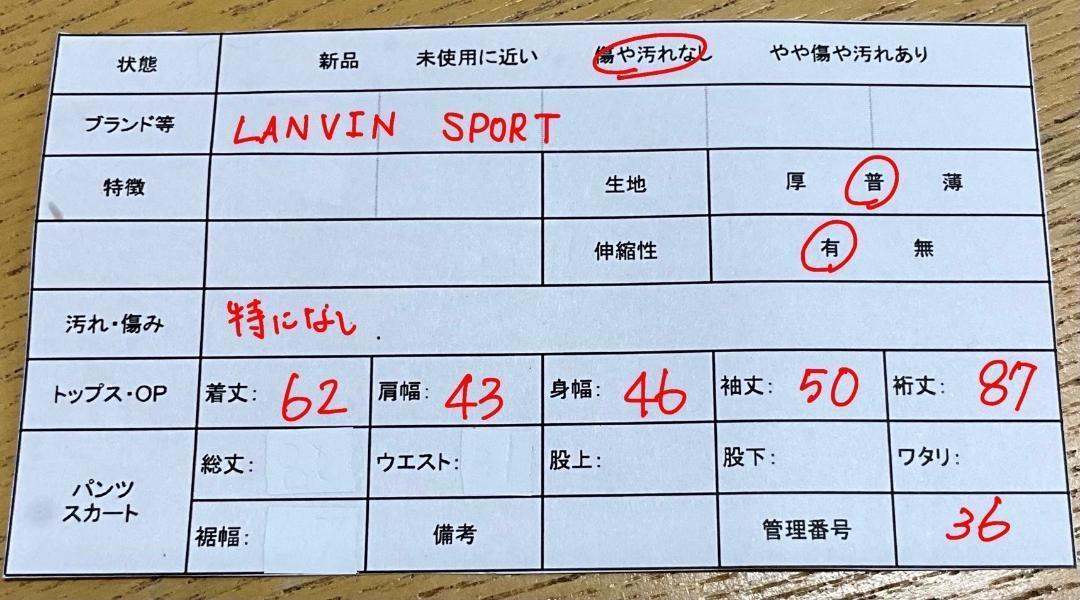 状態 新品 未使用に近い 傷や汚れなし やや傷や汚れあり
ブランド等 LANVIN SPORT
特徴 生地 厚 普 薄
伸縮性 有 無
汚れ・傷み 特になし.
トップス・OP 着丈: 62 肩幅: 43 身幅: 46 袖丈: 50 裄丈: 87
パンツ
スカート
総丈: ウエスト: 股上: 股下: ワタリ:
裾幅: 備考 管理番号 36